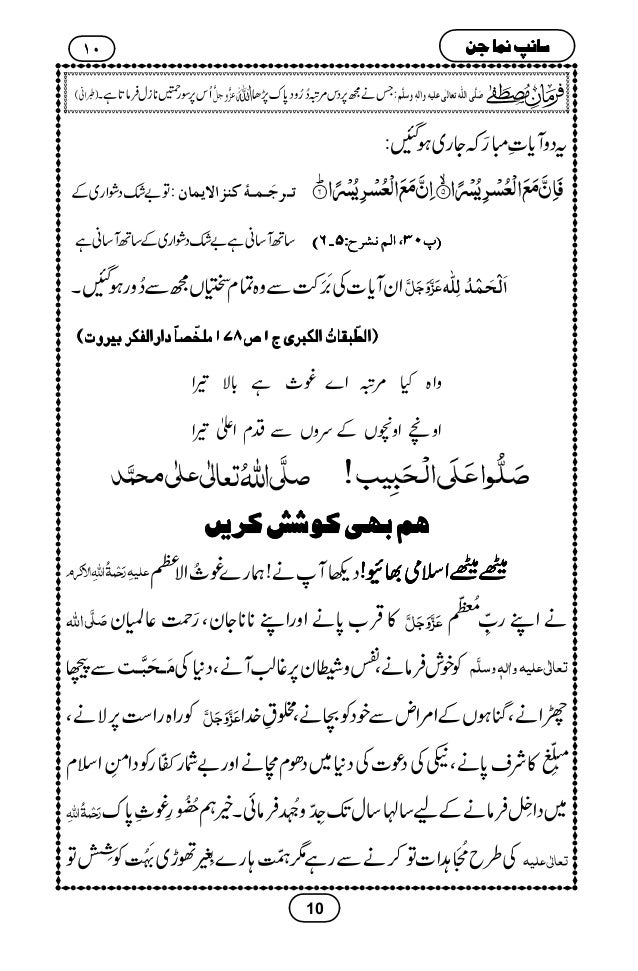 سانپ نما جن
۱۰
فرمانِ مصطفٰے صلَّی اللہ تعالٰی علیہ واٰلہٖ وسلَّم: جس نے مجھ پر دس مرتبہ دُرُود پاک پڑھا اللہ عَزَّوَجَلَّ اُس پر سو رحمتیں نازل فرماتا ہے۔ (طبرانی)
یہ دو آیاتِ مبارَکہ جاری ہوگئیں:
فَاِنَّ مَعَ الْعُسْرِ یُسْرًا ۙ﴿۵﴾ اِنَّ مَعَ الْعُسْرِ یُسْرًا ؕ﴿۶﴾ ترجَمۂ کنزالایمان: تو بے شک دشواری کے
ساتھ آسانی ہے بے شک دشواری کے ساتھ آسانی ہے (پ۳۰، الم نشرح:۵۔۶)
اَلْحَمْدُ لِلّٰہ عَزَّوَجَلَّ ان آیات کی بَرَکت سے وہ تمام سختیاں مجھ سے دُور ہوگئیں۔
(الطّبقاتُ الکبری ج۱ ص۱۷۸ ملخصاً دارالفکر بیروت)
واہ کیا مرتبہ اے غوث ہے بالا تیرا
اونچے اونچوں کے سروں سے قدم اعلیٰ تیرا
صَلُّوا عَلَی الْحَبِیب! صلَّی اللہُ تعالٰی علٰی محمَّد
ہم بھی کوشش کریں
میٹھے میٹھے اسلامی بھائیو! دیکھا آپ نے! ہمارے غوثُ الاعظم علیہِ رَحْمَۃُ اللہِ الاکرم
نے اپنے ربِّ مُعظَّم عَزَّوَجَلَّ کا قرب پانے اور اپنے نانا جان، رَحمت عالمیان صلَّی اللہ
تعالٰی علیہ واٰلہٖ وسلَّم کو خوش فرمانے، نفس و شیطان پر غالب آنے، دنیا کی مَحَبَّت سے پیچھا
چھڑانے، گناہوں کے امراض سے خود کو بچانے، مخلوقِ خدا عَزَّوَجَلَّ کو راہ راست پر لانے،
مبلِّغ کا شرف پانے، نیکی کی دعوت کی دنیا میں دھوم مچانے اور بے شمار کفّار کو دامنِ اسلام
میں داخِل فرمانے کے لیے سالہا سال تک جِدّ و جُہد فرمائی۔ خیر ہم حُضُورِ غوثِ پاک رَحْمَۃُ اللہِ
تعالٰی علیہ کی طرح مُجاہَدات تو کرنے سے رہے مگر ہمّت ہارے بِغیر تھوڑی بَہُت کوشِش تو
10